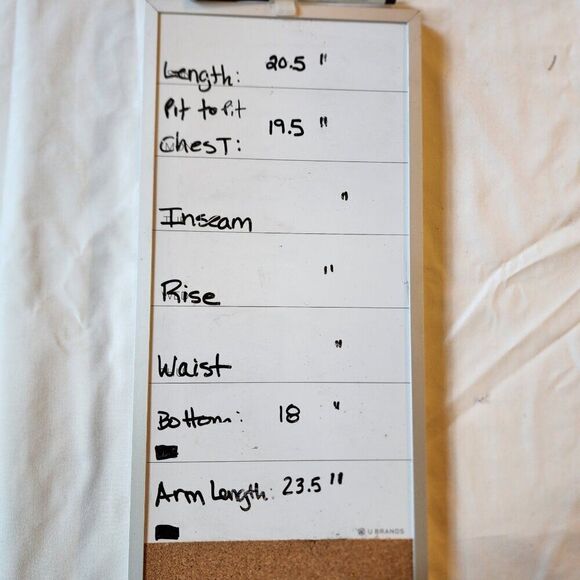 Length: 20.5 "
Pit to Pit
Chest: 19.5 "
Inseam "
Rise "
Waist "
Bottom: 18 "
Arm Length: 23.5 "
U BRANDS